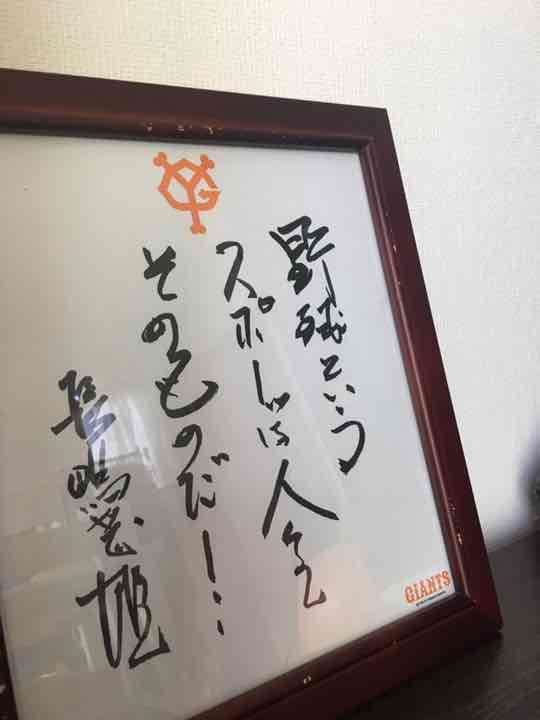 野球という
スポーツは人生
そのものだ!
長嶋茂雄
YG
GIANTS